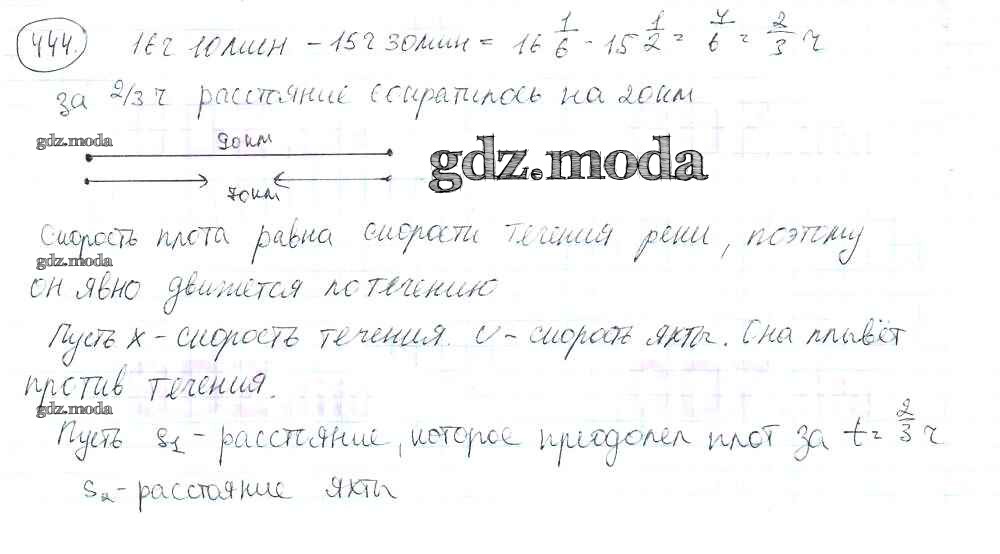 444. 16ч 10мин - 15ч 30мин = 16 1/6 - 15 1/2 = 4/6 = 2/3 ч
за 2/3 ч расстояние сократилось на 20км
gdz.moda
90км
gdz.moda
70км
Скорость плота равна скорости течения реки, поэтому
gdz.moda
он явно движется по течению
Пусть x - скорость течения. v - скорость яхты. Она плывёт
против течения.
gdz.moda
Пусть s₁ - расстояние, которое преодолел плот за t = 2/3 ч
s₂ - расстояние яхты